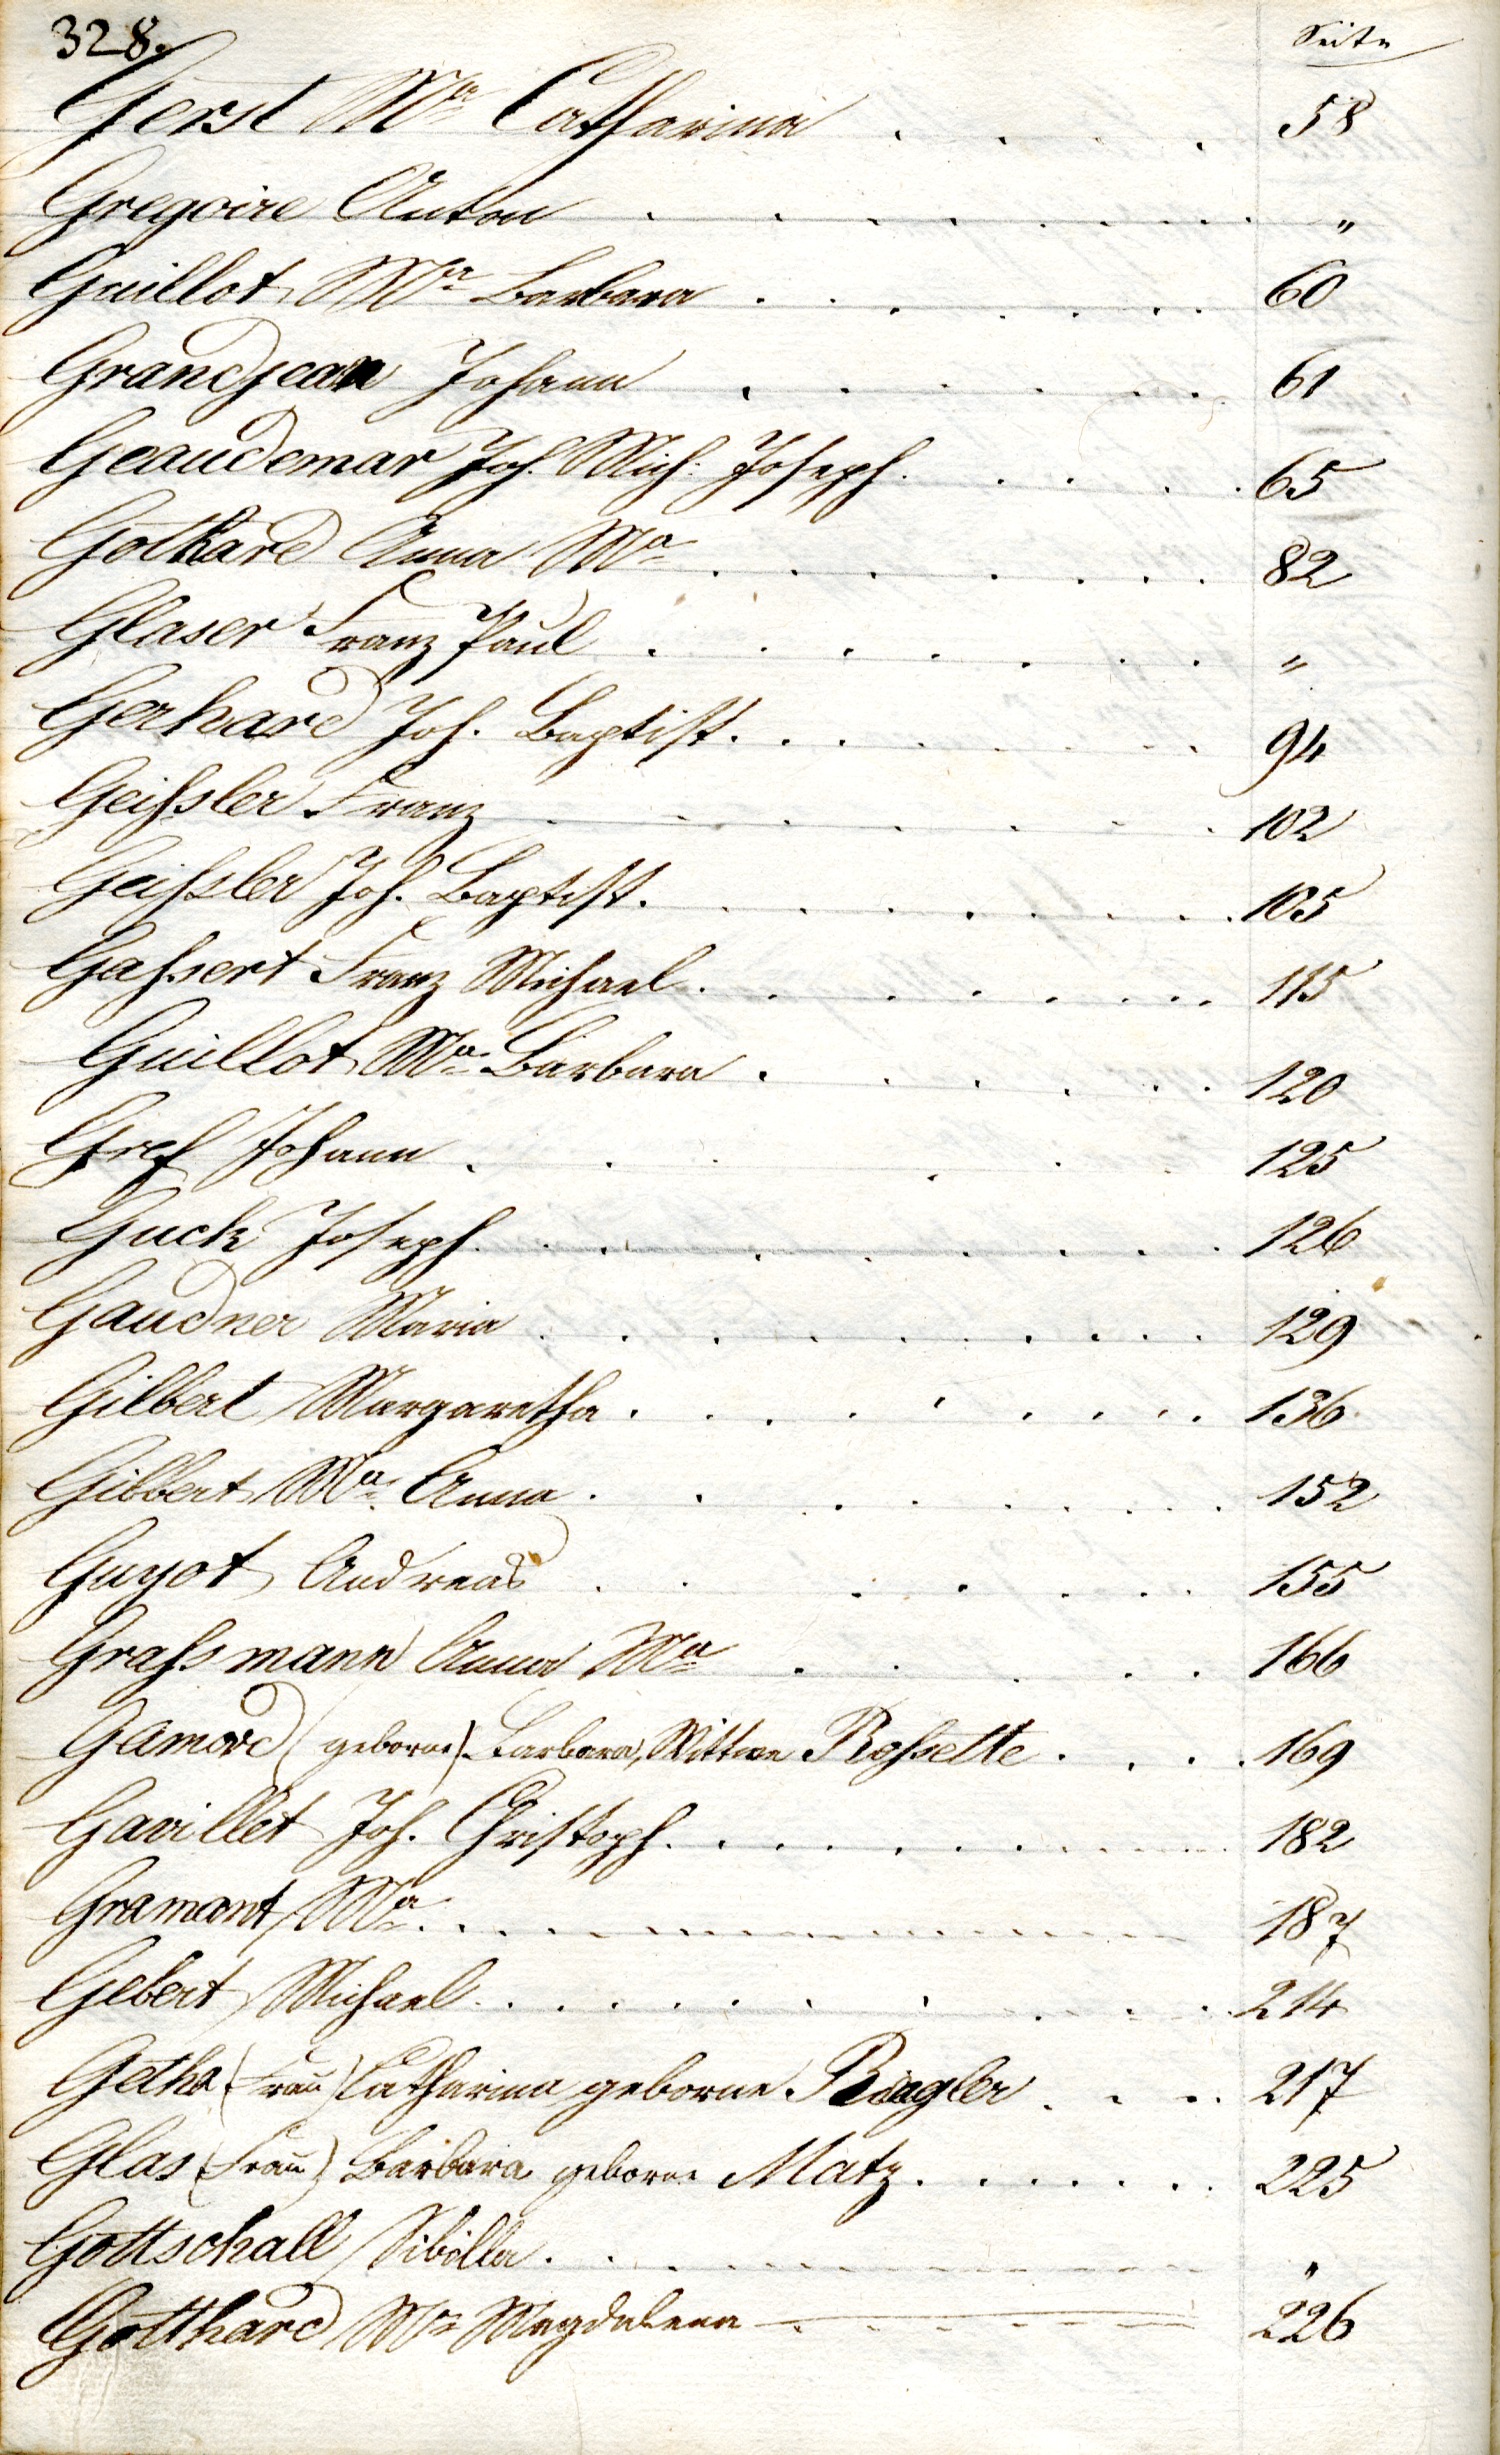 328. Seite
Gerst Mª Catharina . . . . 58
Gregoire Anton . . . . . . . . "
Guillot Mª Barbara . . . . . . . 60
Grandjean Johann . . . . . . . 61
Geaudemar Joh. Mich: Joseph . . . . . 65
Gothard Anna Mª . . . . . . . . 82
Glaser Franz Paul . . . . . . . . "
Gerhard Joh. Baptist . . . . . . . . 94
Geißler Franz . . . . . . . . 102
Geißler Joh. Baptist . . . . . . . . 105
Gaßert Franz Michael . . . . . . . . 115
Guillot Mª Barbara . . . . . . . 120
Gref Johann . . . . . 125
Guck Joseph . . . . . . . . . 126
Gaudner Maria . . . . . . . . . . 129
Gilbert Margaretha . . . . . . . . . . 136
Gilbert Mª Anna . . . . . . . . . 152
Guyot Andreas . . . . . . . 155
Graßmann Anna Mª . . . . . . 166
Gamord (geborne) Barbara, Wittwe Roßette . . . . 169
Gavillet Joh. Christoph . . . . . . . . 182
Gramont Mª . . . . . . . . . . . . 187
Gebert Michael . . . . . . . . . . . 214
Getha (Frau) Catharina geborne Bagler . . . . 217
Glas (Frau) Barbara geborne Matz . . . . . . 225
Gottschall Sibilla . . . . . . . . . . "
Gotthard Mª Magdalena . . . . . . 226